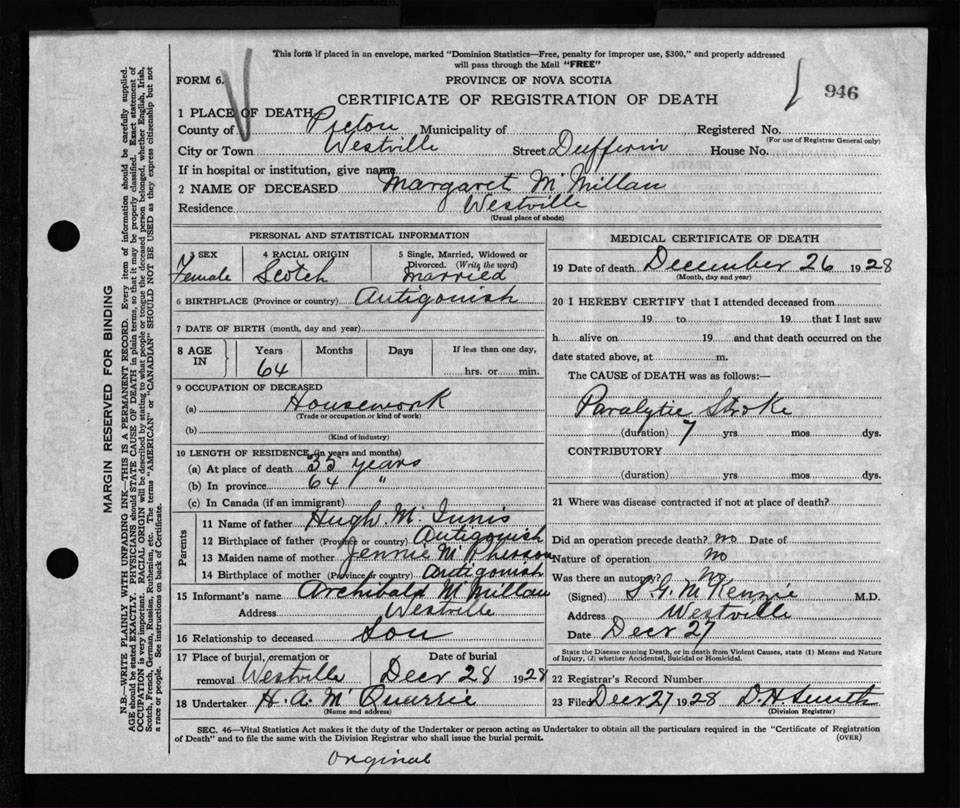 This form if placed in an envelope, marked "Dominion Statistics—Free, penalty for improper use, $300," and properly addressed
will pass through the Mail "FREE"
FORM 6.
PROVINCE OF NOVA SCOTIA
CERTIFICATE OF REGISTRATION OF DEATH
946
1 PLACE OF DEATH
County of Pictou Municipality of Registered No.
(For use of Registrar General only)
City or Town Westville Street Dufferin House No.
If in hospital or institution, give name
2 NAME OF DECEASED Margaret McMillan
Residence Westville
(Usual place of abode)
MARGIN RESERVED FOR BINDING
N.B.—WRITE PLAINLY WITH UNFADING INK—THIS IS A PERMANENT RECORD. Every item of information should be carefully supplied.
AGE should be stated EXACTLY. PHYSICIANS should STATE CAUSE OF DEATH in plain terms, so that it may be properly classified. Exact statement of
OCCUPATION is very important. RACIAL ORIGIN will be described by stating to what people or tongue the deceased person belonged, whether English, Irish,
Scotch, French, German, Russian, Ruthenian, etc. The terms "AMERICAN" or "CANADIAN" SHOULD NOT BE USED as they express citizenship but not
a race or people. See instructions on back of Certificate.
PERSONAL AND STATISTICAL INFORMATION
3 SEX 4 RACIAL ORIGIN 5 Single, Married, Widowed or
Divorced. (Write the word)
Female Scotch Married
6 BIRTHPLACE (Province or country) Antigonish
7 DATE OF BIRTH (month, day and year)
8 AGE IN Years Months Days If less than one day,
64 hrs. or min.
9 OCCUPATION OF DECEASED
(a) Housework
(Trade or occupation or kind of work)
(b)
(Kind of industry)
10 LENGTH OF RESIDENCE (in years and months)
(a) At place of death 35 years
(b) In province 64 "
(c) In Canada (if an immigrant)
Parents
11 Name of father Hugh McInnis
12 Birthplace of father (Province or country) Antigonish
13 Maiden name of mother Jennie McPherson
14 Birthplace of mother (Province or country) Antigonish
15 Informant's name Archibald McMillan
Address Westville
16 Relationship to deceased Son
17 Place of burial, cremation or Date of burial
removal Westville Decr 28 1928
18 Undertaker H. A. McQuarrie
(Name and address)
MEDICAL CERTIFICATE OF DEATH
19 Date of death December 26 1928
(Month, day and year)
20 I HEREBY CERTIFY that I attended deceased from
19 to 19 that I last saw
h alive on 19 and that death occurred on the
date stated above, at m.
The CAUSE of DEATH was as follows:—
Paralytic Stroke
(duration) 7 yrs mos dys.
CONTRIBUTORY
(duration) yrs mos dys.
21 Where was disease contracted if not at place of death?
Did an operation precede death? no Date of
Nature of operation no
Was there an autopsy? No
(Signed) S. G. McKenzie M.D.
Address Westville
Date Decr 27
State the Disease causing Death, or in death from Violent Causes, state (1) Means and Nature
of Injury, (2) whether Accidental, Suicidal or Homicidal.
22 Registrar's Record Number
23 Filed Decr 27 1928 D H Smith
(Division Registrar)
SEC. 46—Vital Statistics Act makes it the duty of the Undertaker or person acting as Undertaker to obtain all the particulars required in the "Certificate of Registration
of Death" and to file the same with the Division Registrar who shall issue the burial permit.
(OVER)
Original